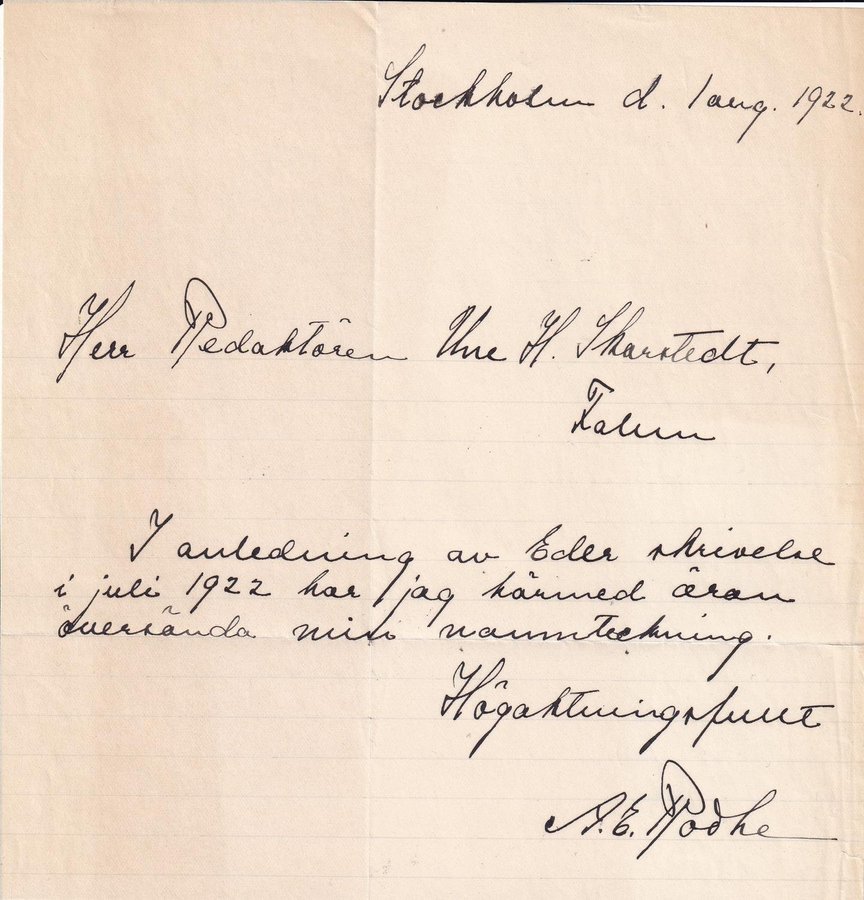 Stockholm d. 1 aug. 1922.
Herr Redaktören Une H. Skarstedt,
Falun
I anledning av Eder skrivelse
i juli 1922 har jag härmed äran
översända min namnteckning.
Högaktningsfullt
A. E. Rodhe